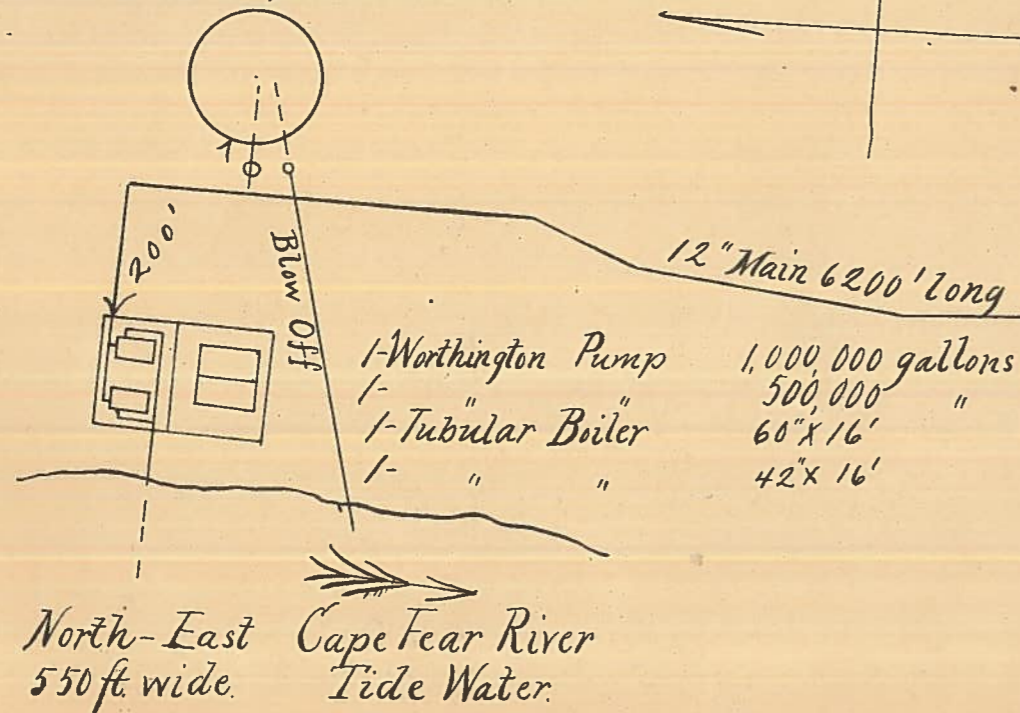 200'
Blow Off
12" Main 6200' long
1-Worthington Pump 1,000,000 gallons
1- " " 500,000 "
1-Tubular Boiler 60" X 16'
1- " " 42" X 16'
North-East Cape Fear River
550 ft. wide. Tide Water.